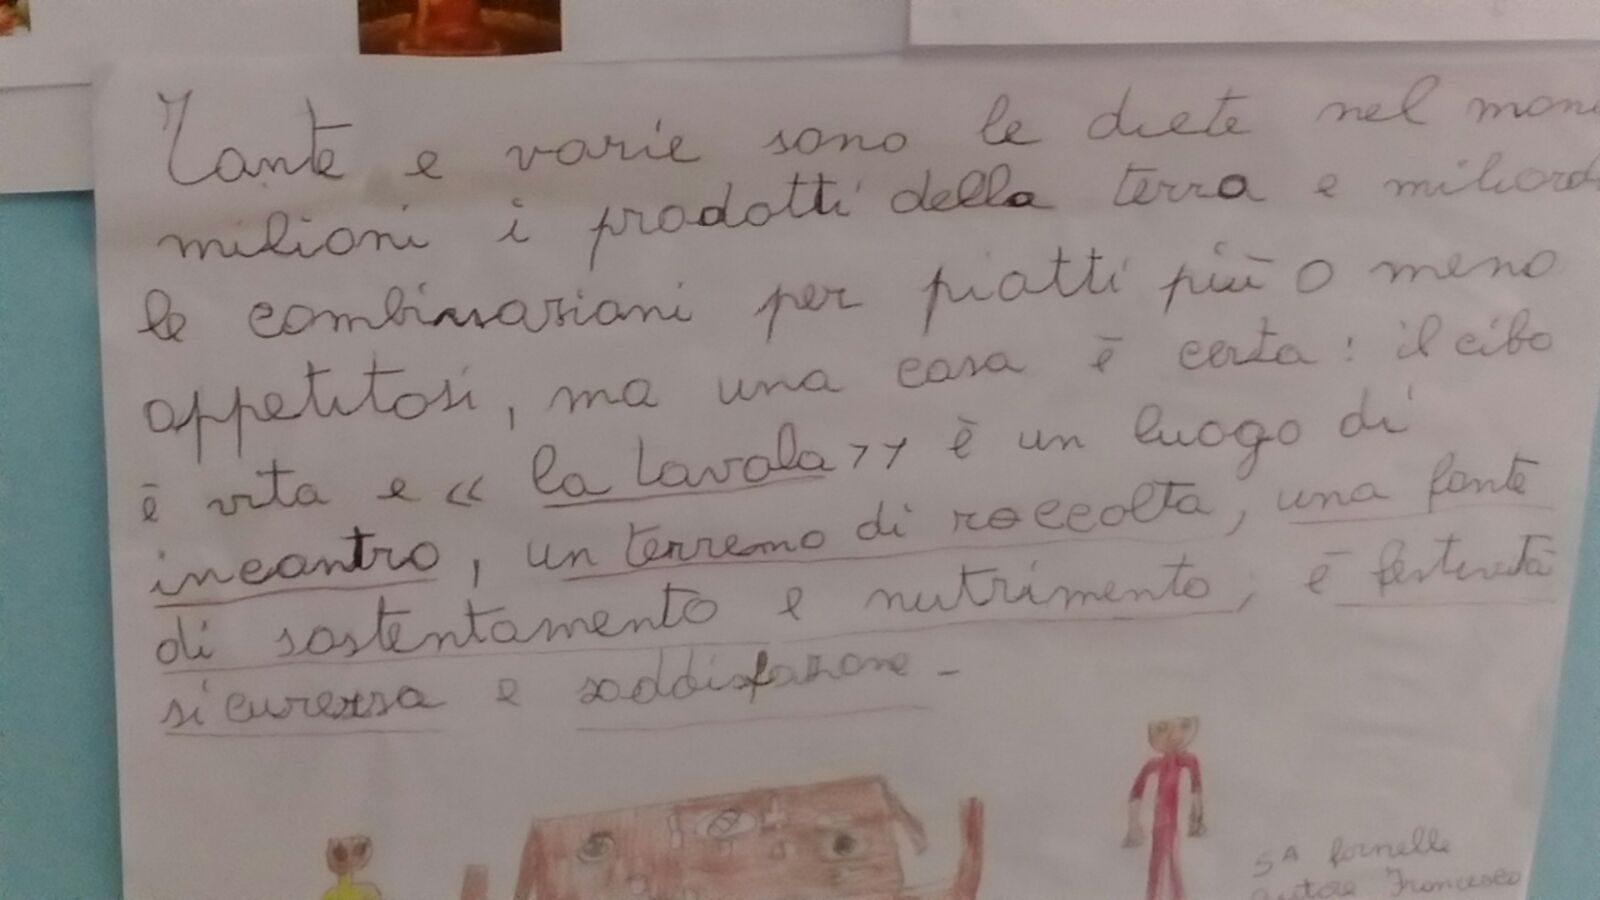 Tante e varie sono le diete nel mon
milioni i prodotti della terra e miliard
le combinazioni per piatti più o meno
appetitosi, ma una cosa è certa: il cibo
è vita e « la tavola >> è un luogo di
incontro, un terreno di raccolta, una fonte
di sostentamento e nutrimento, è festività
sicurezza e soddisfazione -
5ª fornelle
autore Francesco